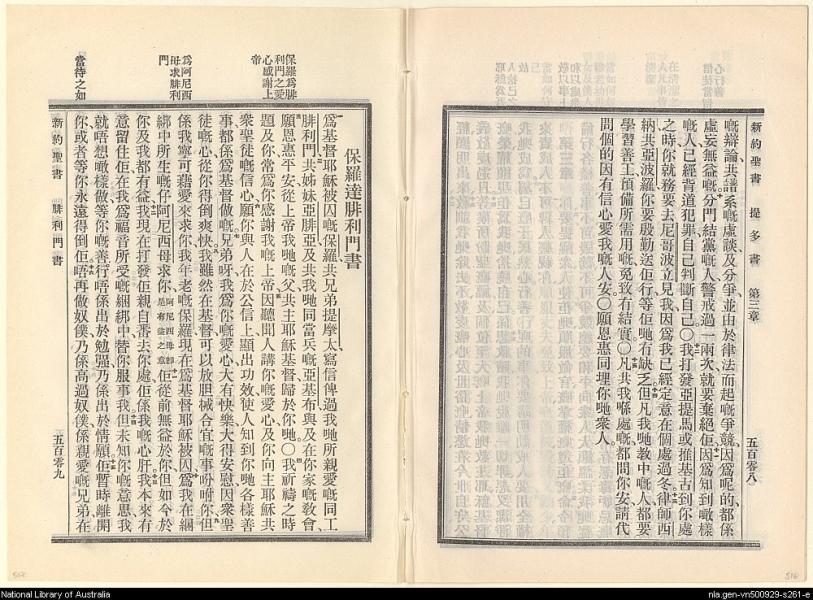 新約聖書 提多書 第三章 五百零八
嘅辯論共譜系嘅虛談及分爭並由於律法而起嘅爭競因爲呢的都係
虛妄無益嘅分門結黨嘅人警戒過一兩次就要棄絕佢因爲知到噉樣
嘅人已經背道犯罪自己判斷自己○我打發亞提馬或推基古到你處
之時你就務要去尼哥波立見我因爲我已經定意在個處過冬律師西
納共亞波羅你要殷勤送佢行等佢哋冇缺乏但凡我哋教中嘅人都要
學習善工預備所需用嘅免致冇結實○凡共我喺處嘅都問你安請代
問個的因有信心愛我嘅人安○願恩惠同埋你哋衆人
保羅爲腓
利門之愛
心感謝上
帝
爲阿尼西
母求腓利
門
當待之如
保羅達腓利門書
爲基督耶穌被囚嘅保羅共兄弟提摩太寫信俾過我哋所親愛嘅同工
腓利門共姊妹亞腓亞及共我哋同當兵嘅亞基布與及在你家嘅敎會
願恩惠平安從上帝我哋嘅父共主耶穌基督歸於你哋○我祈禱之時
題及你常爲你感謝我嘅上帝因聽聞人講你嘅愛心及你向主耶穌共
衆聖徒嘅信心願你與人在於公信上顯出功效使人知到你哋各樣善
事都係爲基督做嘅兄弟呀我爲你嘅愛心大有快樂大得安慰因衆聖
徒嘅心從你得倒爽快我雖然在基督可以放胆械合宜嘅事吩咐你但
係我寧可藉愛來求你我年老嘅保羅現在爲基督耶穌被囚爲我在綑
綁中所生嘅仔阿尼西母求你佢從前無益於你但如今於
你及我都有益我現在打發佢親自番去你處佢係我嘅心肝我本來有
意留住佢在我爲福音所受嘅綑綁中替你服事我但未知你嘅意思我
就唔想噉樣做等你嘅善行唔係出於勉强乃係出於情願佢暫時離開
你或者等你永遠得倒佢唔再做奴僕乃係高過奴僕係親愛嘅兄弟在
新約聖書 腓利門書 五百零九
National Library of Australia
nla.gen-vn500929-s261-e